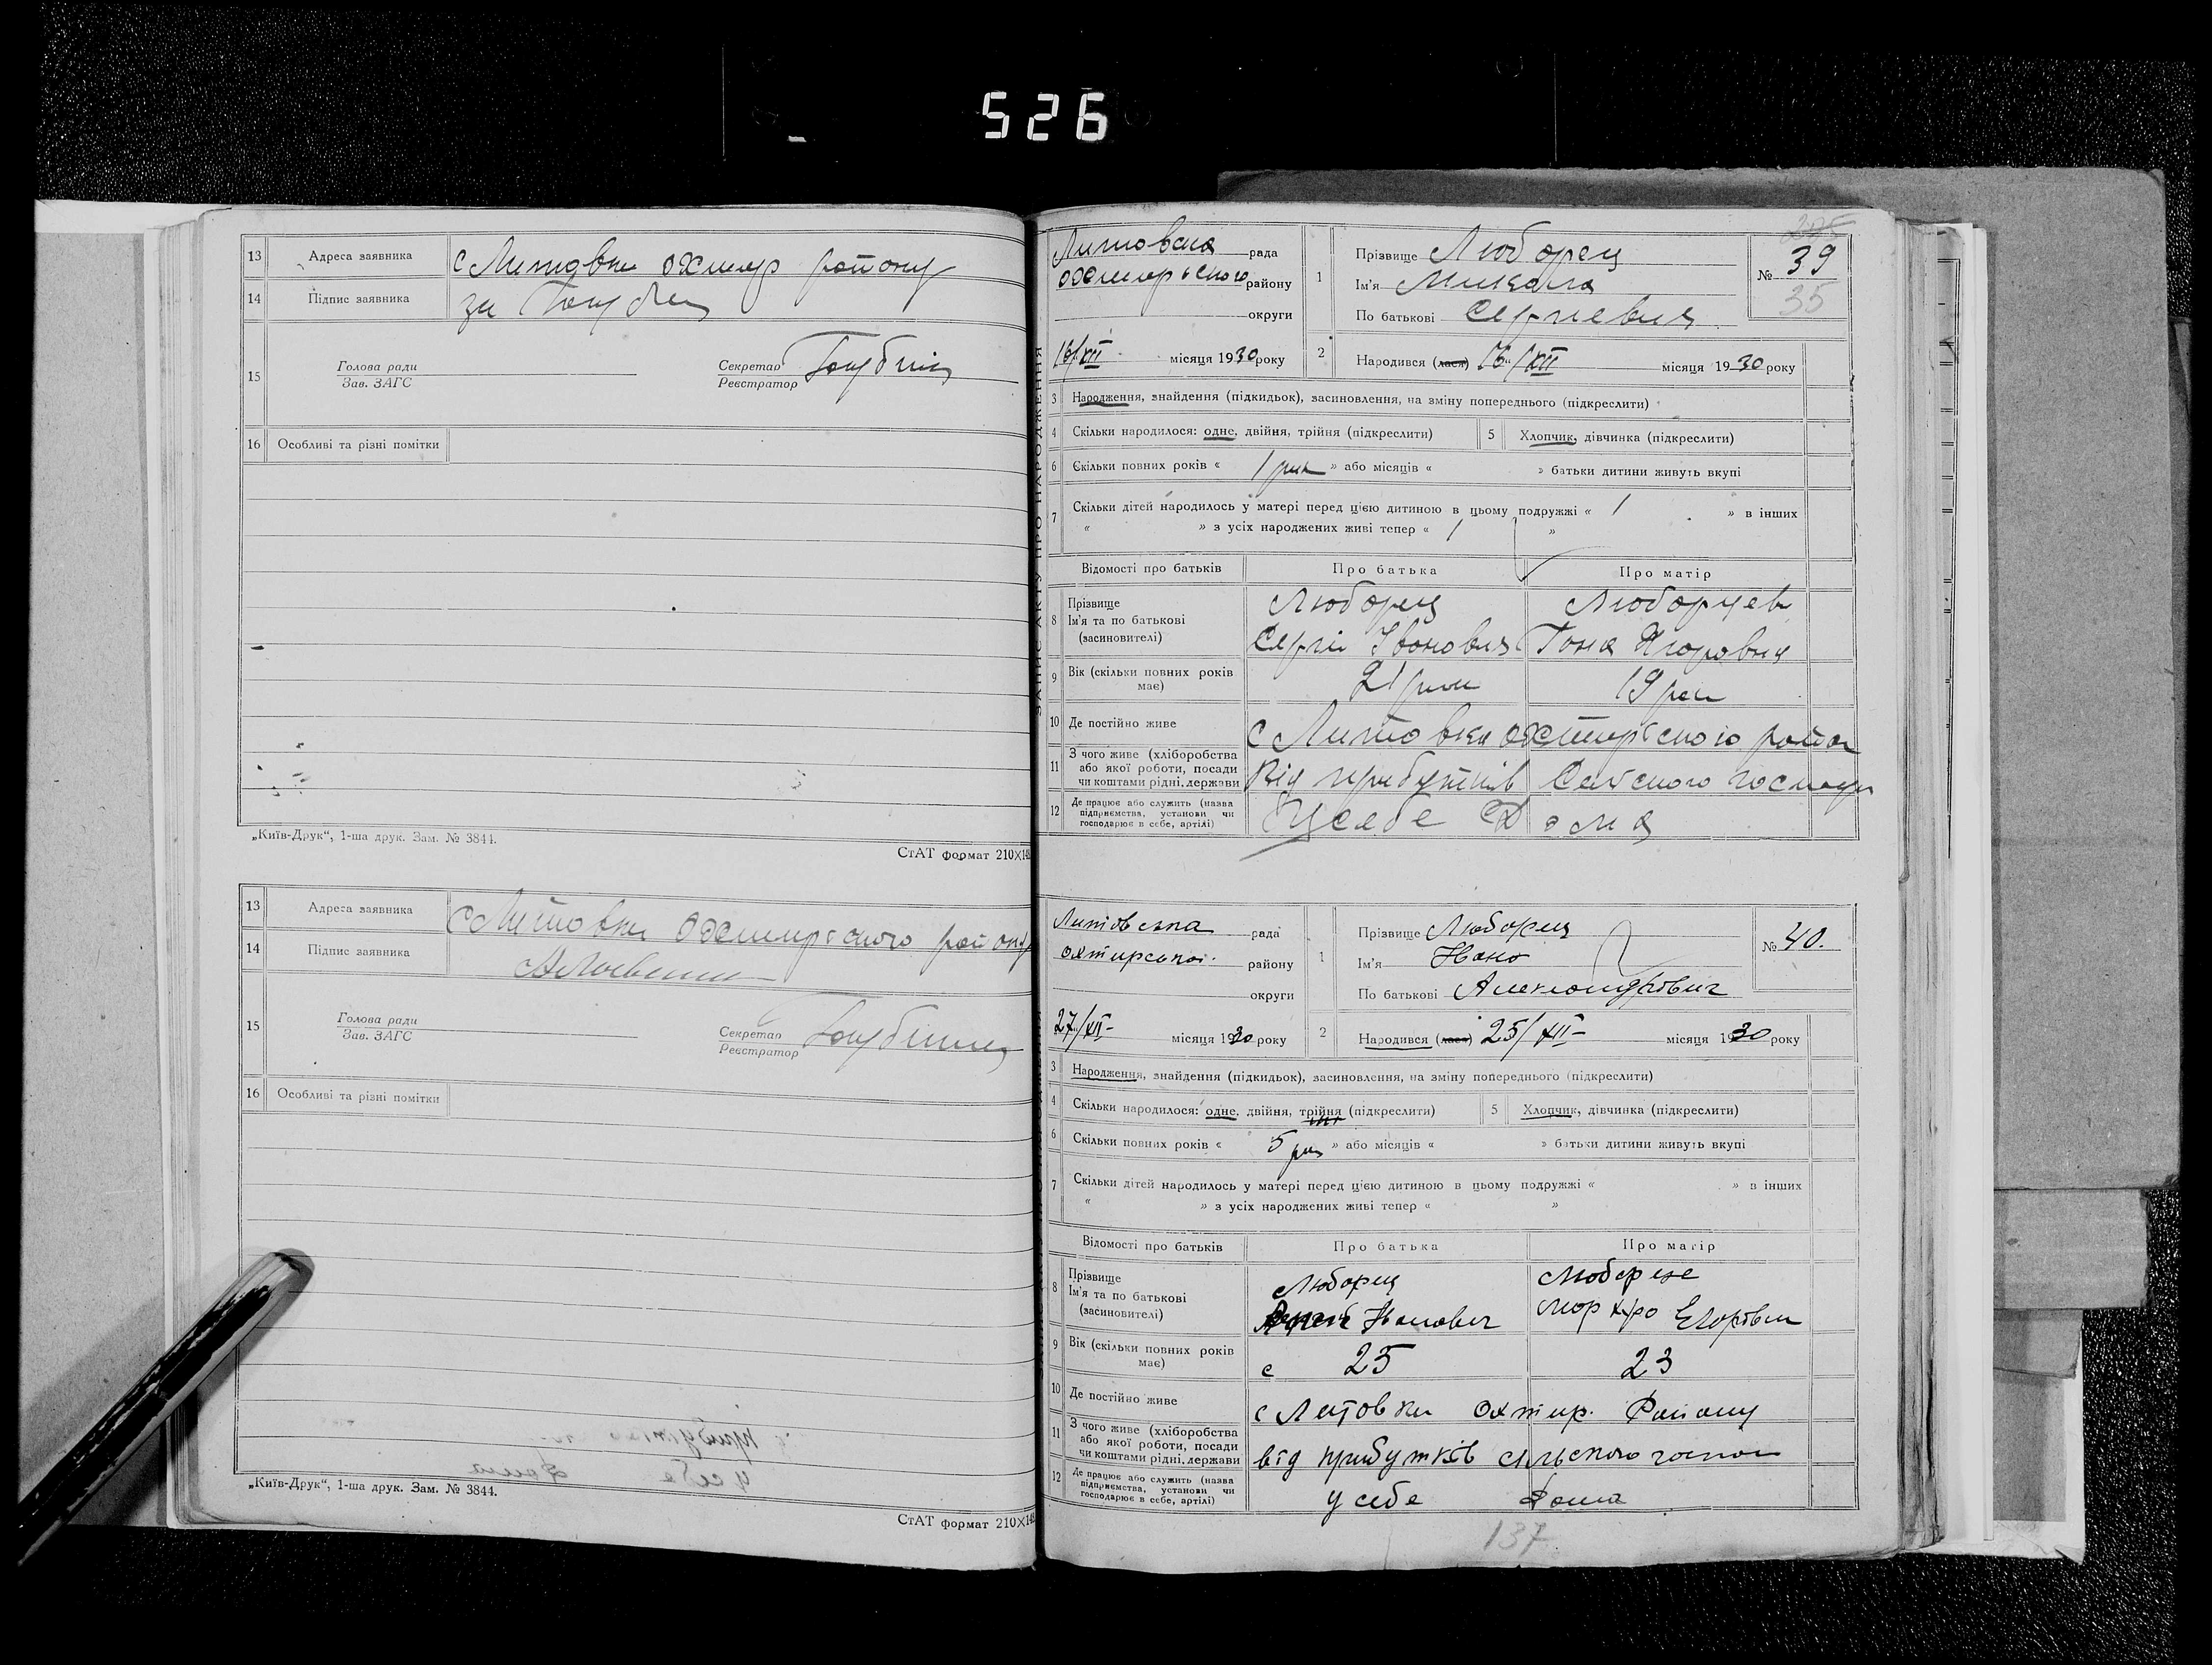 526
13 Адреса заявника с Литовки охтир району
14 Підпис заявника за
15 Голова ради
Зав. ЗАГС
Секретар
Реєстратор
16 Особливі та різні помітки
„Київ-Друк“, 1-ша друк. Зам. № 3844.
СтАТ формат 210×148
13 Адреса заявника с Литовки Охтирського району
14 Підпис заявника
15 Голова ради
Зав. ЗАГС
Секретар
Реєстратор
16 Особливі та різні помітки
„Київ-Друк“, 1-ша друк. Зам. № 3844.
СтАТ формат 210×148
ЗАПИС АКТУ ПРО НАРОДЖЕННЯ
Литовська рада
охтирського району
округи
16/XII місяця 1930 року
1 Прізвище Люборец
Ім'я Микола
По батькові Сергиевич
№ 39
35
2 Народився (лася) 16/XII місяця 1930 року
3 Народження, знайдення (підкидьок), засиновлення, на зміну попереднього (підкреслити)
4 Скільки народилося: одне, двійня, трійня (підкреслити) 5 Хлопчик, дівчинка (підкреслити)
6 Скільки повних років « 1 рик » або місяців « » батьки дитини живуть вкупі
7 Скільки дітей народилось у матері перед цією дитиною в цьому подружжі « 1 » в інших
« » з усіх народжених живі тепер « 1 »
Відомості про батьків Про батька Про матір
8 Прізвище
Ім'я та по батькові
(засиновителі)
Люборец
Сергій Іванович
9 Вік (скільки повних років має) 21 19
10 Де постійно живе с Литовка охтирського район
11 З чого живе (хліборобства або якої роботи, посади чи коштами рідні, держави Від прибутків Сельского господ
12 Де працює або служить (назва підприємства, установи чи господарює в себе, артілі) У себе Дома
Литовська рада
охтирської району
округи
27/XII місяця 1930 року
1 Прізвище Люборец
Ім'я Ивано
По батькові Александрович
№ 40.
2 Народився (лася) 25/XII місяця 1930 року
3 Народження, знайдення (підкидьок), засиновлення, на зміну попереднього (підкреслити)
4 Скільки народилося: одне, двійня, трійня (підкреслити) 5 Хлопчик, дівчинка (підкреслити)
6 Скільки повних років « 5 » або місяців « » батьки дитини живуть вкупі
7 Скільки дітей народилось у матері перед цією дитиною в цьому подружжі « » в інших
« » з усіх народжених живі тепер « »
Відомості про батьків Про батька Про матір
8 Прізвище
Ім'я та по батькові
(засиновителі)
Люборец
Иванович
9 Вік (скільки повних років має) 25 23
10 Де постійно живе с Литовки Охтир. Району
11 З чого живе (хліборобства або якої роботи, посади чи коштами рідні, держави від прибутків сільського
12 Де працює або служить (назва підприємства, установи чи господарює в себе, артілі) у себе Дома
137